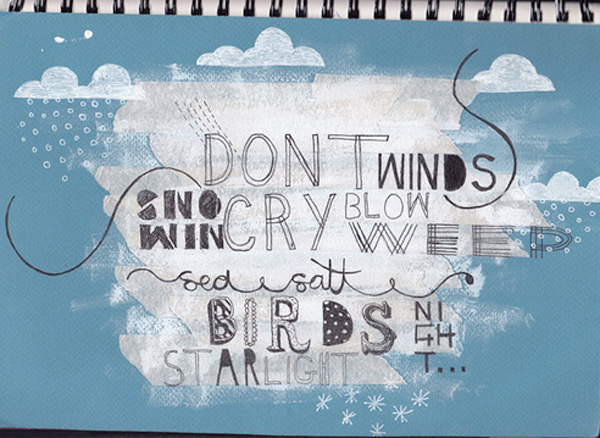 DONT WINDS
SNO
WIN CRY BLOW
WEEP
sed satt
BIRDS NI
GH
T...
STARLIGHT